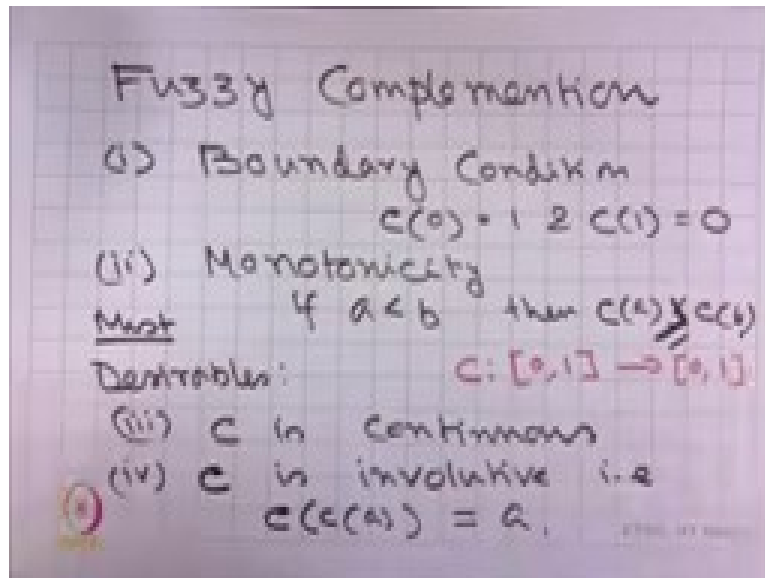 Fuzzy Complemention
(i) Boundary Condition
C(0) = 1 & C(1) = 0
(ii) Monotonicity
Must if a < b then C(a) ≥ C(b)
Desirables: C: [0,1] → [0,1]
(iii) C is continuous
(iv) C is involutive i.e
C(C(a)) = a.